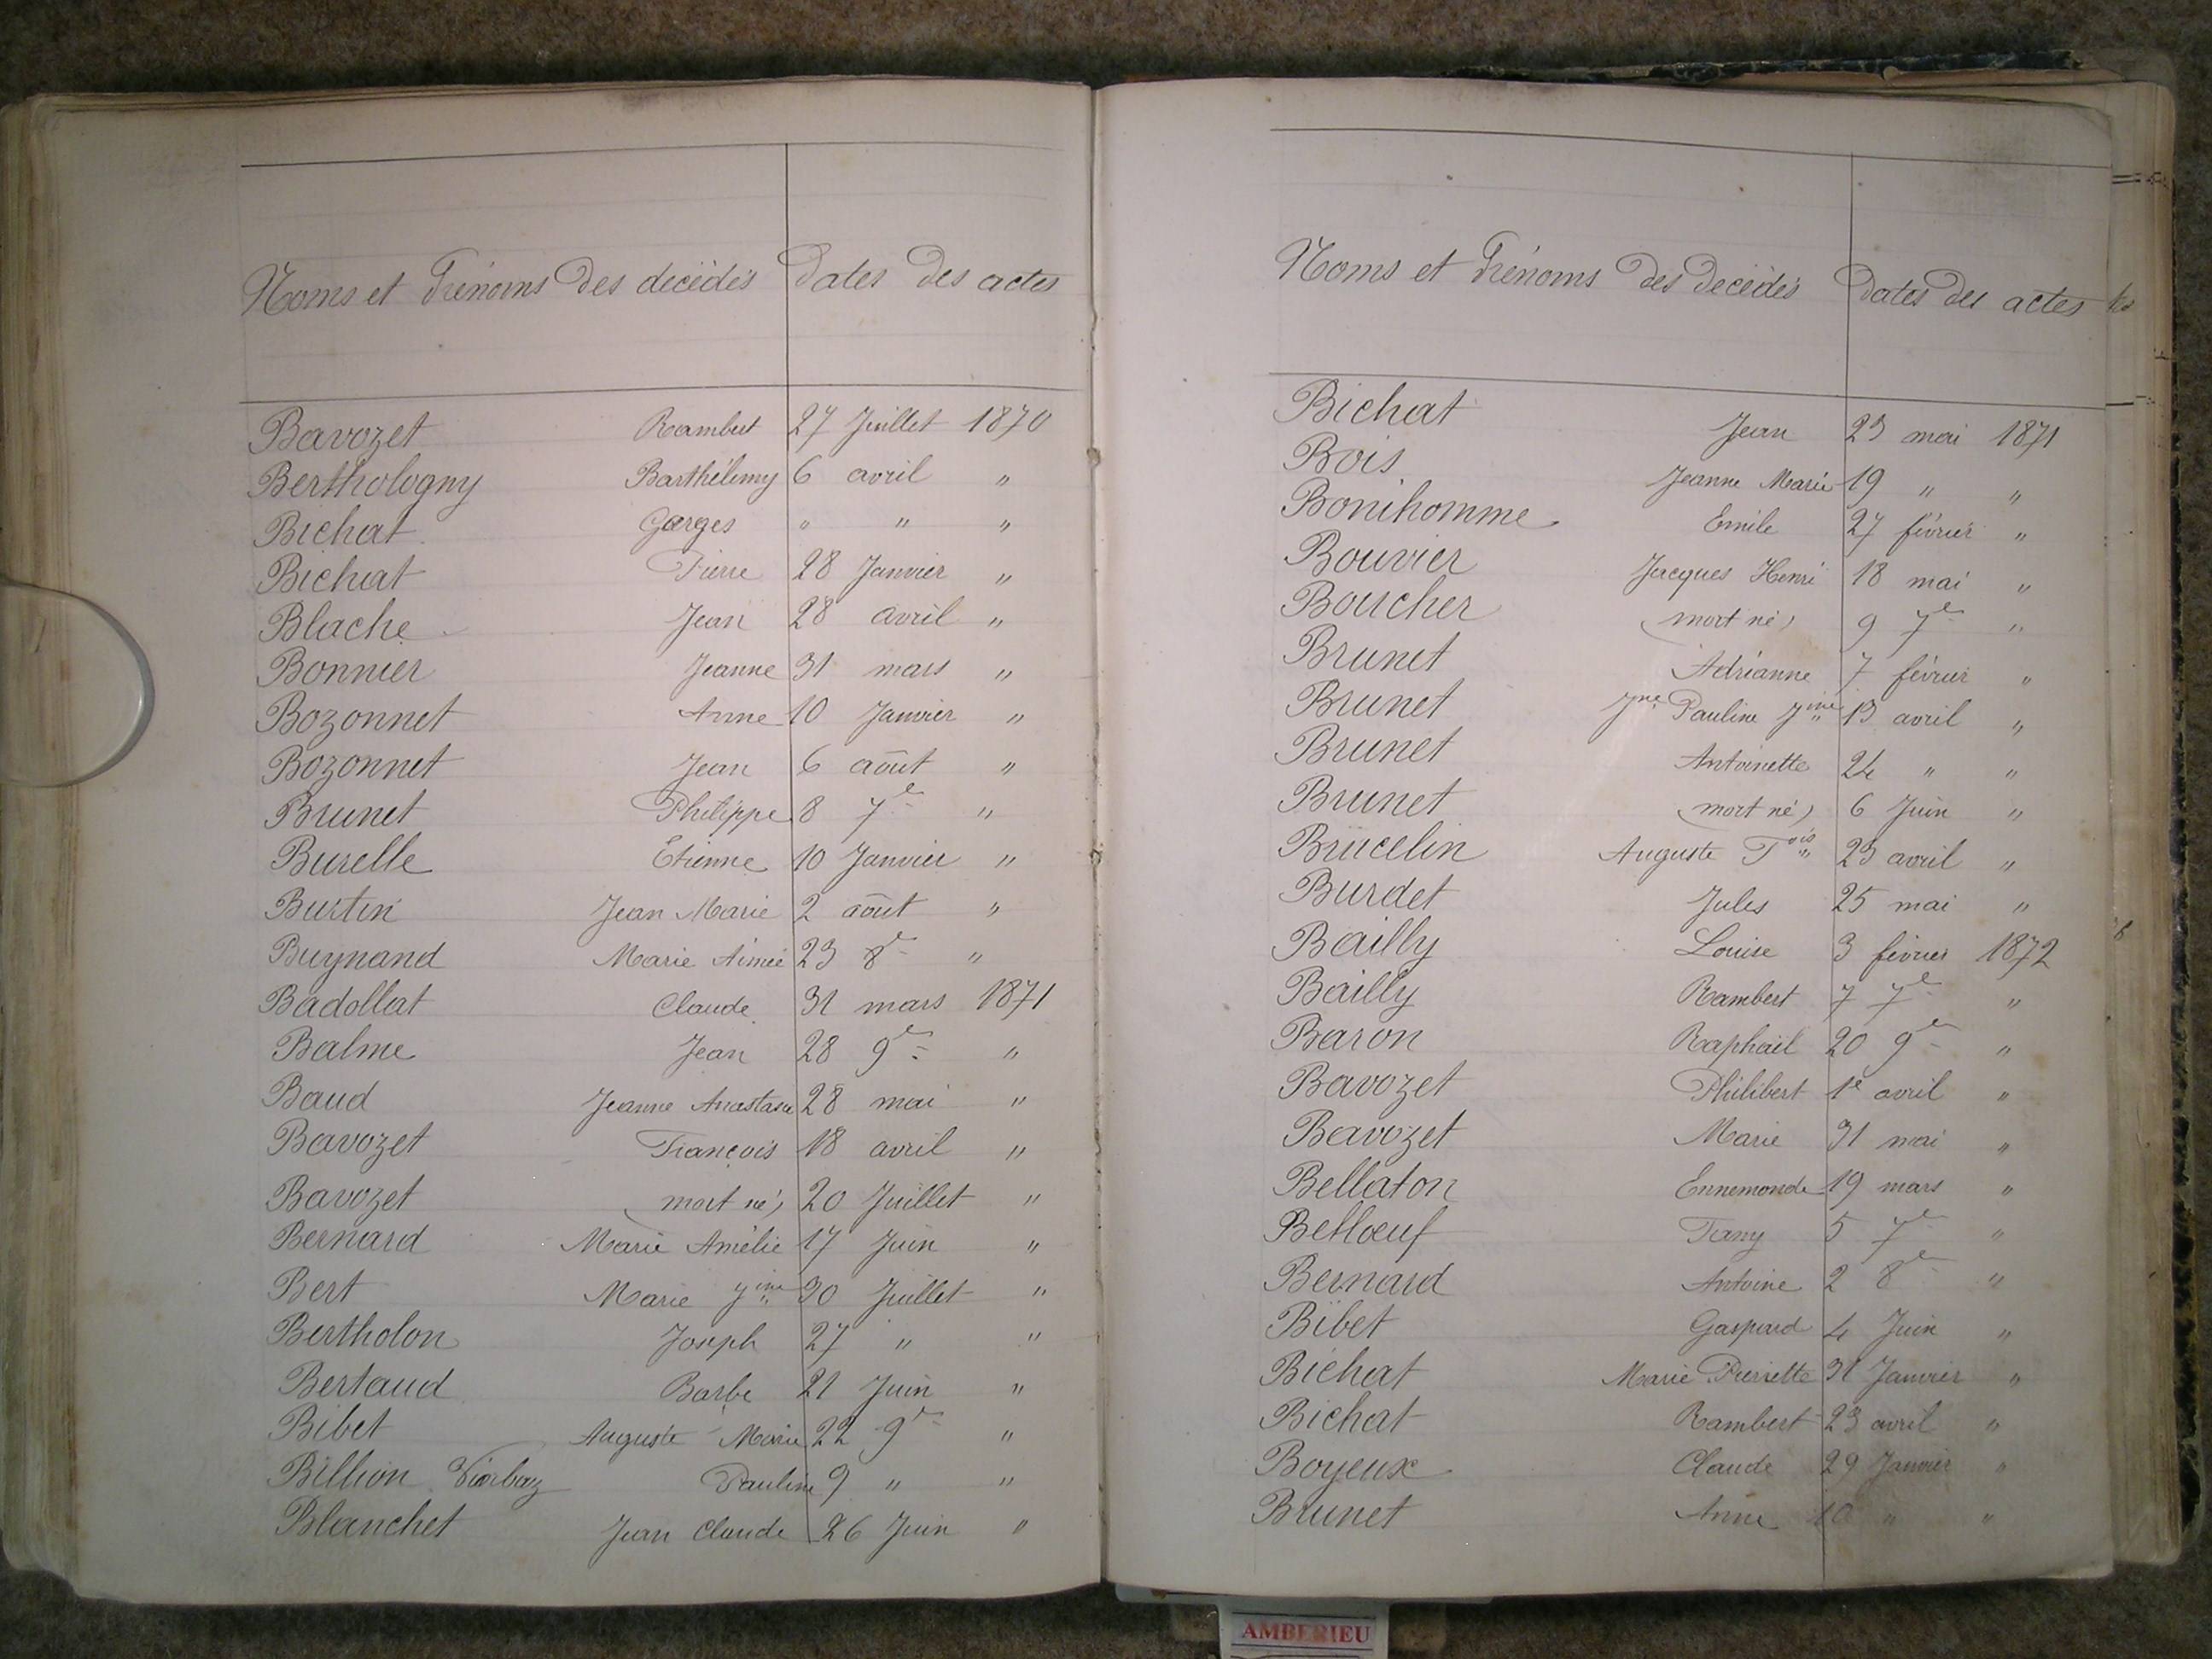 Noms et Prénoms des décédés Dates des actes
Bavozet Rambert 27 Juillet 1870
Berthologny Barthélemy 6 avril "
Bichat Georges " " "
Bichat Pierre 28 Janvier "
Blache Jean 28 avril "
Bonnier Jeanne 31 mars "
Bozonnet Anne 10 Janvier "
Bozonnet Jean 6 août "
Brunet Philippe 8 7e "
Burelle Etienne 10 Janvier "
Bustin Jean Marie 2 août "
Buynand Marie Aimée 23 8e "
Badollat Claude 31 mars 1871
Balme Jean 28 9e "
Baud Jeanne Anastasie 28 mai "
Bavozet François 18 avril "
Bavozet (mort né) 20 Juillet "
Bernard Marie Amélie 17 Juin "
Bert Marie Jine 30 Juillet "
Bertholon Joseph 27 " "
Bertaud Barbe 21 Juin "
Bibet Auguste Marie 22 9e "
Billion Pauline 9 " "
Blanchet Jean Claude 26 Juin "
Noms et Prénoms des Décédés Dates des actes
Bichat Jean 23 mai 1871
Bois Jeanne Marie 19 " "
Bonihomme Emile 27 février "
Bouvier Jacques Henri 18 mai "
Boucher (mort né) 9 7e "
Brunet Adrianne 7 février "
Brunet Jne Pauline Jine 13 avril "
Brunet Antoinette 24 " "
Brunet (mort né) 6 Juin "
Brucelin Auguste Fois 23 avril "
Burdet Jules 25 mai "
Bailly Louise 3 février 1872
Bailly Rambert 7 7e "
Baron Raphaël 20 9e "
Bavozet Philibert 1e avril "
Bavozet Marie 31 mai "
Bellaton Ennemonde 19 mars "
Belloeuf Fany 5 7e "
Bernard Antoine 2 8e "
Bibet Gaspard 4 Juin "
Bichat Marie Pierrette 31 Janvier "
Bichat Rambert 23 avril "
Boyeux Claude 29 Janvier "
Brunet Anne 10 " "
AMBERIEU